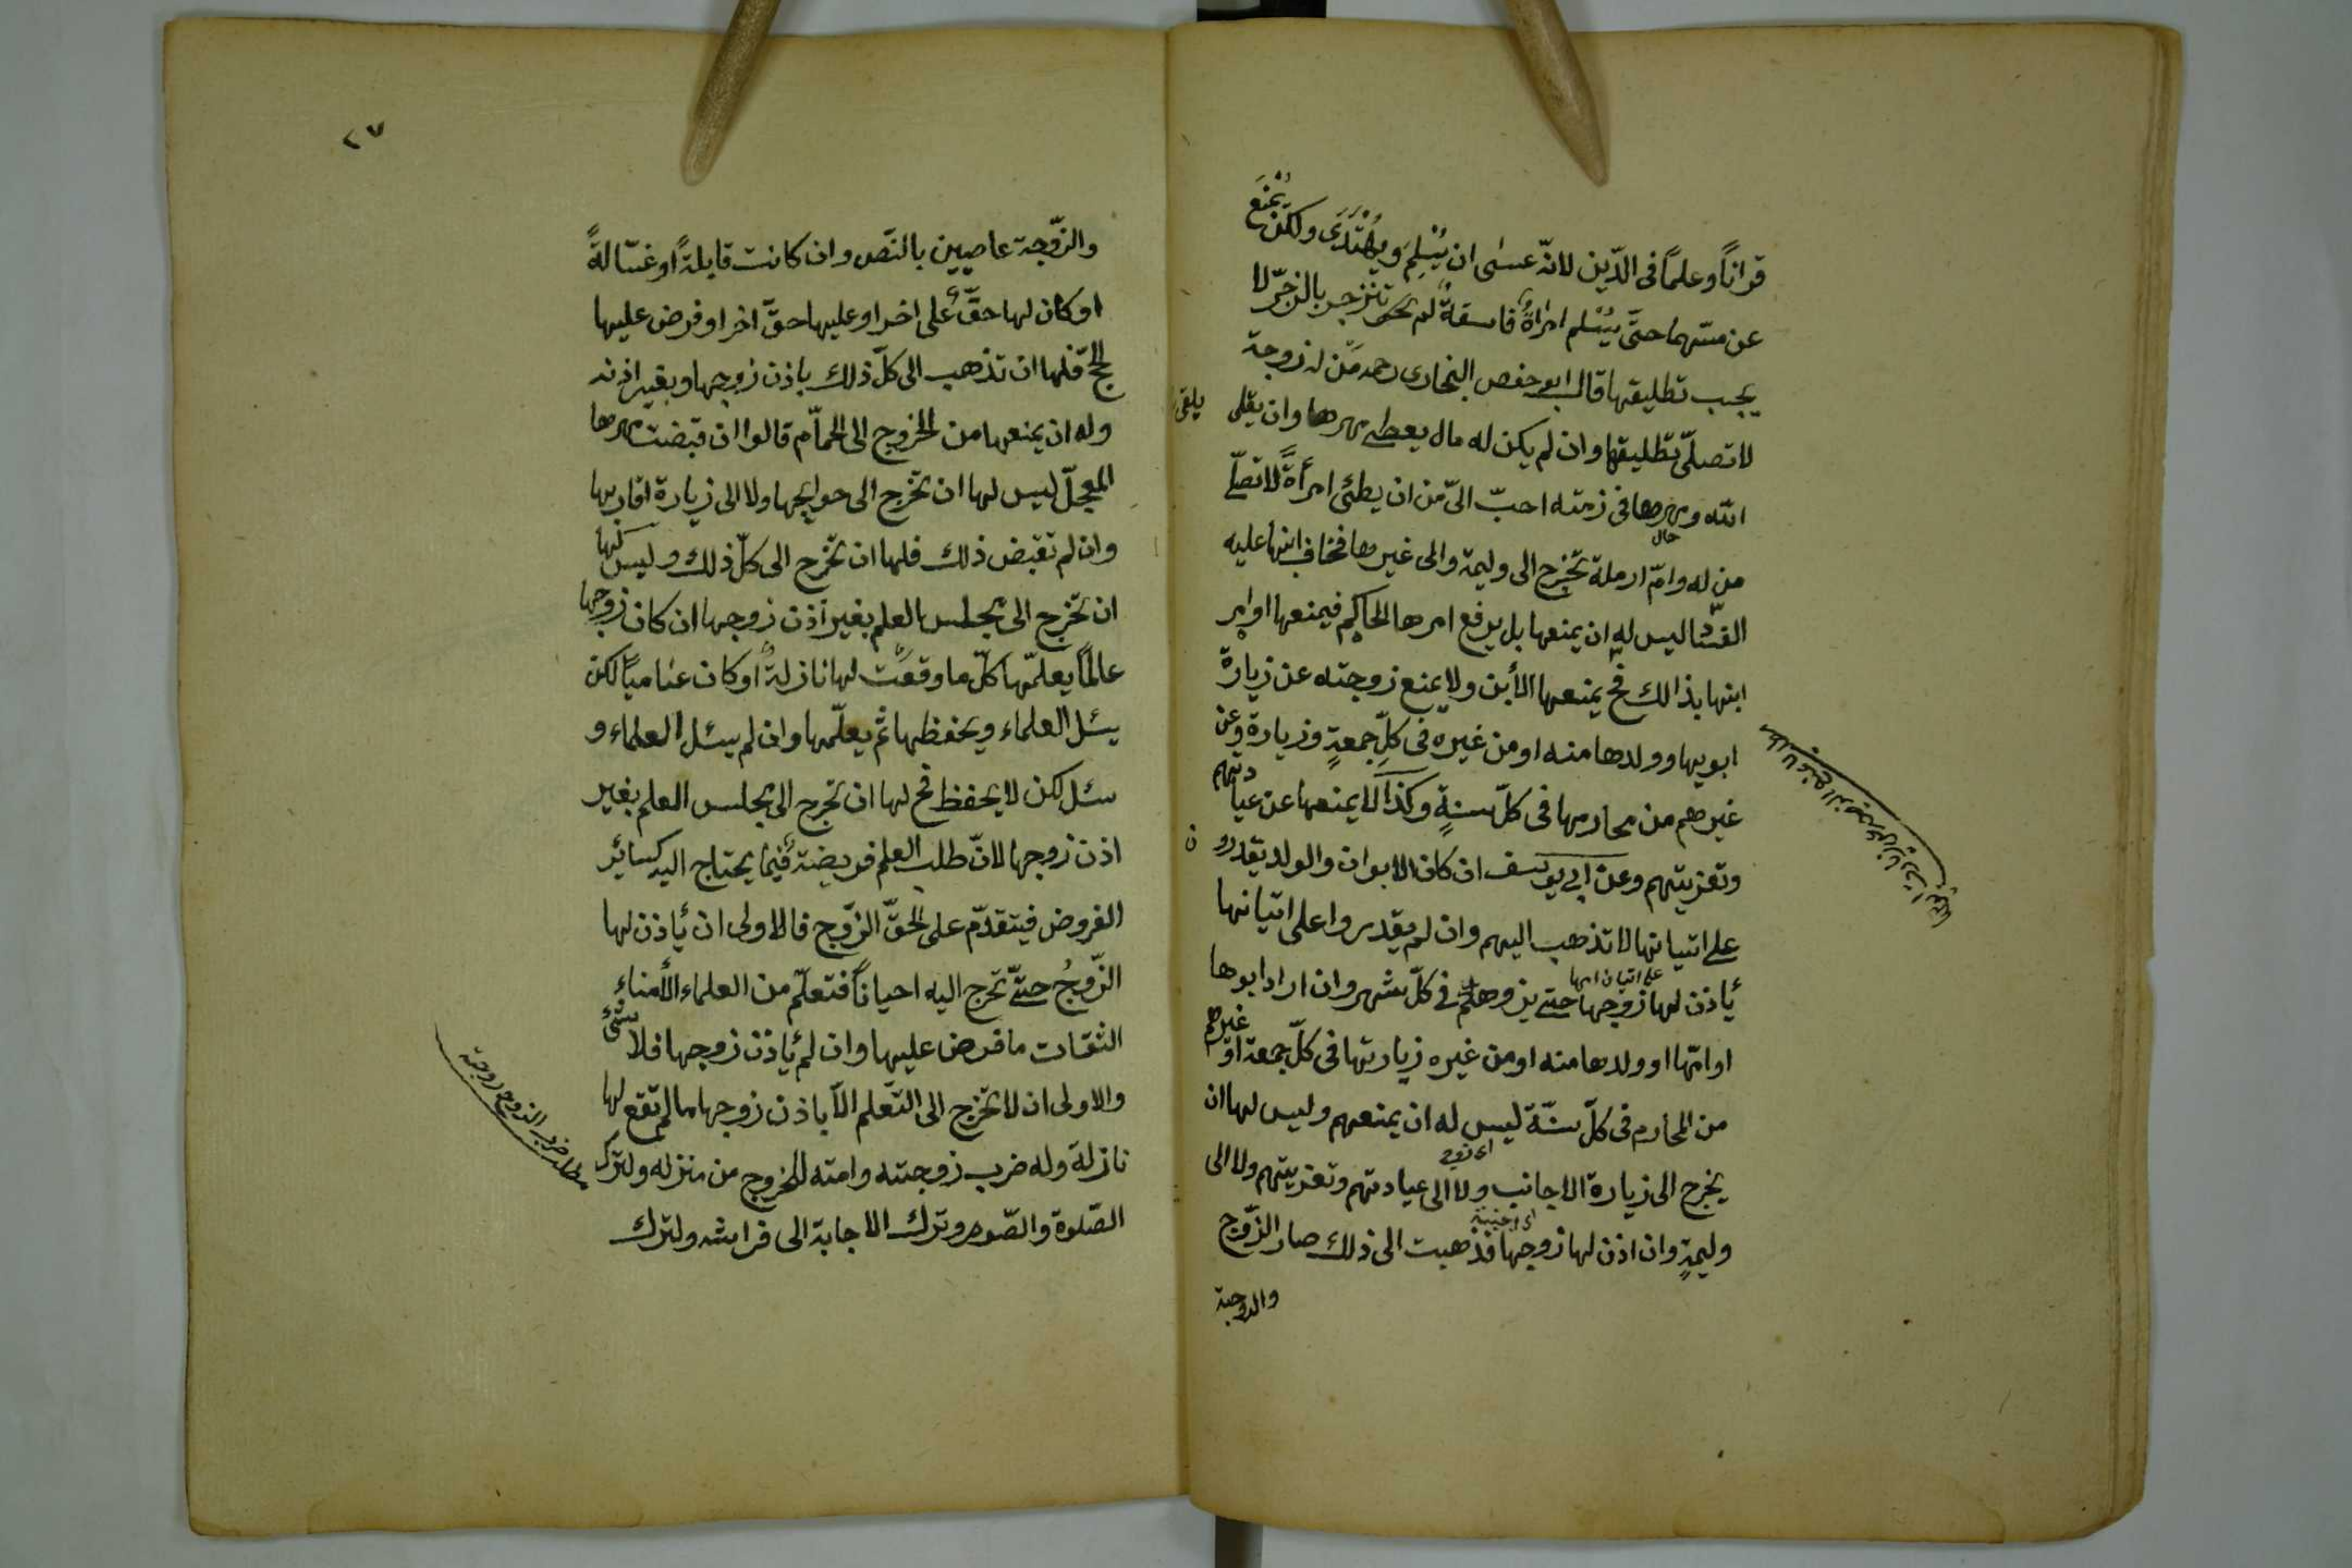 قرانًا وعلمًا فى الدّين لانّه عسٰى ان يُسْلِمَ ويَهْتَدَى ولكن يُمْنَع
عن مسّهما حتّى يُسْلم امراةٌ فاسقةٌ لم تنزجر بالزجّر لا
يجب تطليقها قال ابو حفص البخارى رحمه مّن له زوجة
لا تصلّى تطليقها وان لم يكن له مال يعطى مهرها وان يلقى
يلقى
الله ومهرها فى ذمته احبّ الىّ من ان يطئى امرأةً لا تصلّى
من له وامّ ارملة تخرج الى وليمة والى غيرها فخاف ابنها عليه
حال
الفسّاد ليس له ان يمنعها بل يرفع امرها الحاكم فيمنعها او امر
ابنها بذالك فح يمنعها الأبن ولا يمنع زوجته عن زيارة
ابويها وولدها منه او من غيره فى كلّ جمعةٍ وزيارة وعن
غيرهم من محارمها فى كلّ سنةٍ وكذا لا يمنعها عن عيادتهم
وتعزيتهم وعن ابى يوسف ان كان الابوان والولد يقدرون
على اتيانها لا تذهب اليهم وان لم يقدروا على اتيانها
يأذن لها زوجها حتى يزوهم فى كلّ شهر وان اراد ابوها
على اتيان ابها
او امّها او ولدها منه او من غيره زيارتها فى كلّ جمعة او غيرهم
من المحارم فى كلّ سنّة ليس له ان يمنعهم وليس لها ان
يخرج الى زيارة الاجانب ولا الى عيادتهم وتعزيتهم ولا الى
اى زوج
وليمةٍ وان اذن لها زوجها فذهبت الى ذلك صار الزّوج
اى اجنبية
والزوجة
٢٧
والزّوجة عاصيين بالنّص وان كانت قابلةً او غسّالةً
او كان لها حقٌّ على اخر او عليها حقّ اخر او فرض عليها
الحجّ فلها ان تذهب الى كلّ ذلك باذن زوجها وبغير اذنه
وله ان يمنعها من الخروج الى الحمّام قالوا ان قبضت مهرها
المعجّل ليس لها ان تخرج الى حوايجها ولا الى زيارة اقاربها
وان لم تقبض ذلك فلها ان تخرج الى كلّ ذلك وليس لها
ان تخرج الى مجلس العلم بغير اذن زوجها ان كان زوجها
عالمًا يعلمّها كلّ ما وقعت لها نازلةٌ او كان عاميّا لكن
يسئل العلماء ويحفظها ثم يعلّمها وان لم يسئل العلماء و
سئل لكن لا يحفظ فح لها ان تخرج الى مجلس العلم بغير
اذن زوجها لانّ طلب العلم فريضةٌ فيما يحتاج اليه كسائر
الفروض فيتقدّم على الحقّ الزّوج فالاولى ان يأذن لها
الزّوجُ حتّى تخرج اليه احيانًا فتعلّم من العلماء الأمناء
الثقات ما فرض عليها وان لم يأذن زوجها فلا شئ
والاولى ان لا تخرج الى التّعلم الاّ باذن زوجها ما لم تقع لها
نازلة وله ضرب زوجته وامته للخروج من منزله ولترك
مطلب ضرب الزوج زوجة
الصّلوة والصّوم وترك الاجابة الى فراشه ولترك